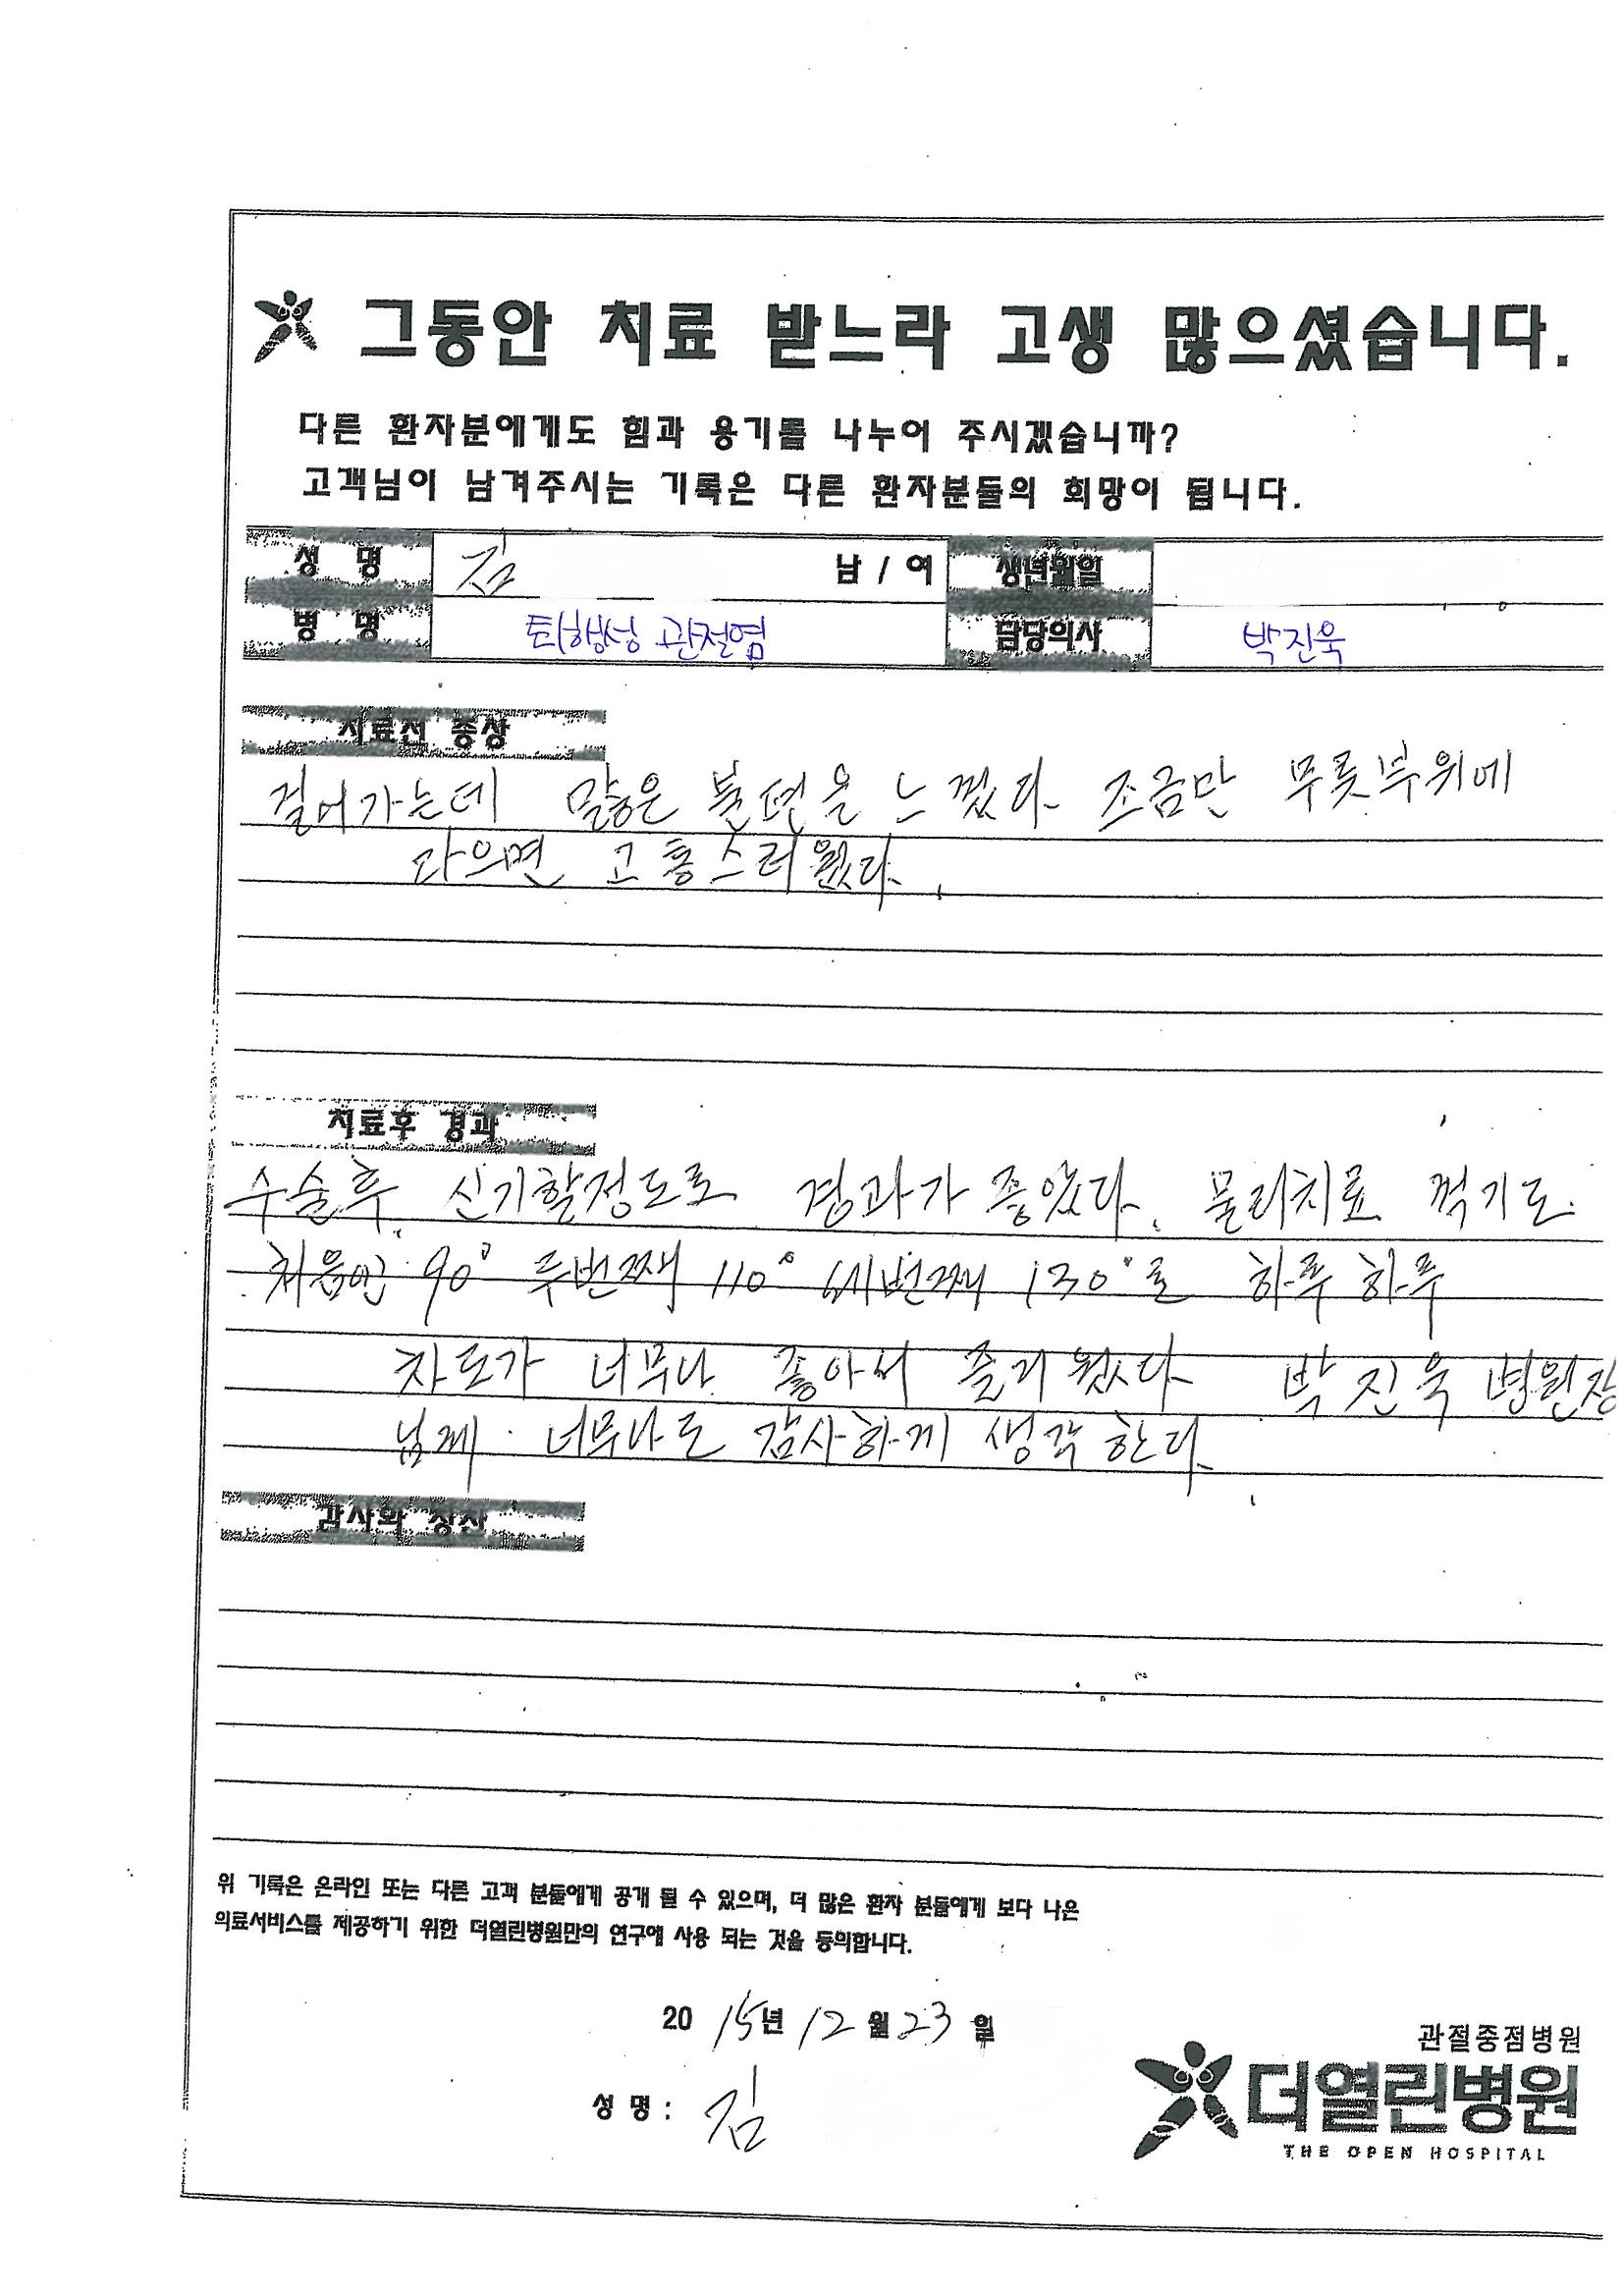 그동안 치료 받느라 고생 많으셨습니다.
다른 환자분에게도 힘과 용기를 나누어 주시겠습니까?
고객님이 남겨주시는 기록은 다른 환자분들의 희망이 됩니다.
성 명 김 남 / 여 생년월일
병 명 퇴행성 관절염 담당의사 박진욱
치료전 증상
걸어가는데 많은 불편을 느꼈다. 조금만 무릎부위에
다으면 고통스러웠다.
치료후 경과
수술후, 신기할정도로 경과가 좋았다. 물리치료 꺽기도
처음엔 90° 두번째 110° 세번째 130°로 하루 하루
차도가 너무나 좋아서 즐거웠다. 박진욱 병원장
님께 너무나도 감사하게 생각한다.
감사와 칭찬
위 기록은 온라인 또는 다른 고객 분들에게 공개 될 수 있으며, 더 많은 환자 분들에게 보다 나은
의료서비스를 제공하기 위한 더열린병원만의 연구에 사용 되는 것을 동의합니다.
2015년 12월 23일
성 명 : 김
관절중점병원
더열린병원
THE OPEN HOSPITAL